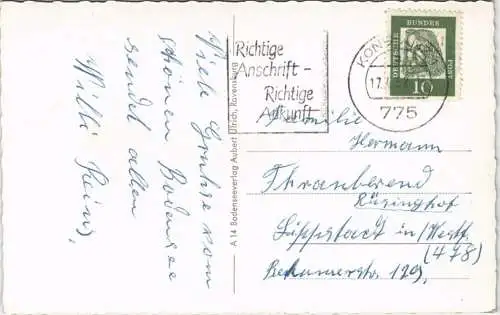 Viele Grüße vom
schönen Bodensee
sendet allen
Willi
A 14 Bodenseeverlag Aubert Ulrich, Ravensburg
Richtige
Anschrift –
Richtige
Ankunft
KONS
17.
775
DEUTSCHE
BUNDES
POST
10
Familie
Hermann
Lippstadt in/Westf
(478)
129,